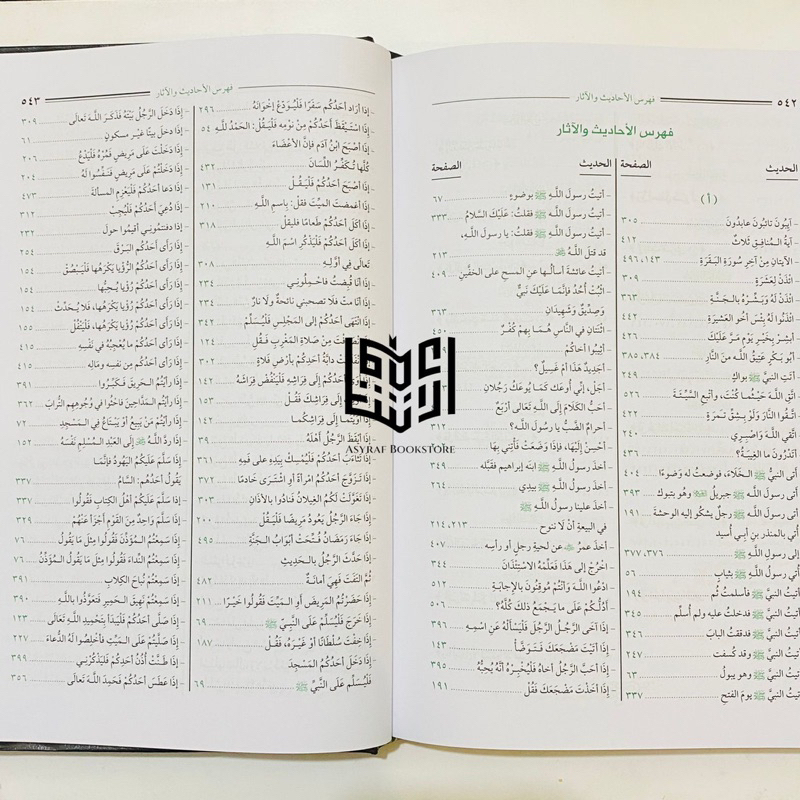 ٥٤٢
فهرس الأحاديث والآثار
فهرس الأحاديث والآثار
الحديث
الصفحة
(أ)
- آيِبُونَ تَائِبُونَ عَابِدُونَ ٣٠٥
- آيَةُ المُنافِقِ ثَلاثٌ ٤١٢
- الآيتانِ مِنْ آخِرِ سُورَةِ البَقَرَةِ ١٤٣، ٤٩٦
- ائْذَنْ لِعَشَرَةٍ ٣٠٩
- ائْذَنْ لَهُ وَبَشِّرْهُ بالجَنَّةِ ٣٦٣
- ائْذَنُوا لَهُ بِئْسَ أخُو العَشِيرَةِ ٣٤٢
- أبْشِرْ بِخَيْرِ يَوْمٍ مَرَّ عَلَيْكَ ٤٢٦
- أبُو بَكْرٍ عَتِيقُ اللَّـهِ منَ النَّارِ ٣٨٤، ٣٨٥
- أتَتِ النَّبيَّ ﷺ بواكٍ ٢٤٩
- اتَّقِ اللَّـهَ حَيْثُمَا كُنْتَ، وَأتْبِعِ السَّيِّئَةَ ٥٢٦
- اتَّقُوا النَّارَ وَلَوْ بِشِقِّ تَمْرَةٍ ٤٢٢
- اتَّقِي اللَّـهَ وَاصْبِرِي ٢٤٠
- أتَدْرُونَ ما الغِيبَةُ؟ ٤٣٦
أتى النبيُّ ﷺ الـخَلَاءَ، فوضعتُ له وَضوءًا ٤٠٤
أتى رسولَ اللَّـهِ ﷺ جبريلُ ﷺ وهو بتبوك ٣٩٣
أتى رسولَ اللَّـهِ ﷺ رجلٌ يشكُو إليه الوحشةَ ١٩١
أُتي بالمنذرِ بنِ أبي أُسيد
إلى رسولِ اللَّـهِ ﷺ ٣٧٦، ٣٧٧
أُتي رسولُ اللَّـهِ ﷺ بثيابٍ ٥٦
أتيتُ النبيَّ ﷺ فأسلمتُ ثم ١٩٤
أتيتُ النبيَّ ﷺ فدخلتُ عليه ولم أُسلِّم ٣٤٥
أتيتُ النبيَّ ﷺ فدققتُ البابَ ٣٤٦
أتيتُ النبيَّ ﷺ وقد كُسفت ٢٤٧
أتيتُ النبيَّ ﷺ وهو يبولُ ٦٣
أتيتُ النبيَّ ﷺ يومَ الفتحِ ٣٣٧
الحديث
الصفحة
- أتيتُ رسولَ اللَّـهِ ﷺ بوضوءٍ ٦٧
- أتيتُ رسولَ اللَّـهِ ﷺ فقلتُ: عَلَيْكَ السَّلامُ ٣٣٣
- أتيتُ رسولَ اللَّـهِ ﷺ فقلتُ: يا رسولَ اللَّـهِ،
قد قتلَ اللَّهُ ٢١٣
- أتيتُ عائشةَ أسألُها عنِ المسحِ على الخفَّينِ ٤٠٩
- اثْبُتْ أُحُدُ فإنَّمَا عَلَيْكَ نَبيٌّ
وَصِدِّيقٌ وَشَهِيدَانِ ٣٦٣
- اثْنَتَانِ في النَّاسِ هُمَا بِهِمْ كُفْرٌ ٤٥٠
- أثِيبُوا أخاكُمْ
- أجَدِيدٌ هَذَا أمْ غَسِيلٌ؟
- أجَلْ، إنِّي أُوعَك كَمَا يُوعَكُ رَجُلانِ
- أحَبُّ الكَلَامِ إلَى اللَّـهِ تَعَالَى أرْبَعٌ
- أحرامٌ الضَّبُّ يا رسولَ اللَّـهِ؟
- أحْسِنْ إلَيْهَا، فَإذَا وَضَعَتْ فَأْتِنِي بِهَا
- أخذَ رسولُ اللَّـهِ ﷺ ابنَه إبراهيمَ فقبَّله ٣٤٩
- أخذَ رسولُ اللَّـهِ ﷺ بيدِي ٢٦٤
- أخذَ علينا رسولُ اللَّـهِ ﷺ
في البيعةِ أنْ لَا ننوح ٢١٣، ٢١٤
- أخذَ عمرُ عن لحيةِ رجلٍ أو رأسِه ٤٠٧
- اخْرُجْ إلى هَذَا فَعَلِّمْهُ الاسْتِئْذَانَ ٣٤٤
- ادْعُوا اللَّـهَ وَأنْتُمْ مُوقِنُونَ بالإجابَةِ ٥١٢
- أدُلُّكُمْ عَلَى ما يَجْمَعُ ذلكَ كُلَّهُ؟ ٥٠٦
- إذَا آخَى الرَّجُلُ الرَّجُلَ فَلْيَسْألْهُ عَنِ اسْمِهِ ٣٩٦
- إذَا أتَيْتَ مَضْجَعَكَ فَتَوَضَّأْ ١٤٣
- إذَا أحَبَّ الرَّجُلُ أخاهُ فَلْيُخْبِرْهُ أنَّهُ يُحِبُّهُ ٣٩٥
- إذَا أخَذْتَ مَضْجَعَكَ فَقُلْ ١٩١
فهرس الأحاديث والآثار
٥٤٣
- إذَا أرَادَ أحَدُكُم سَفَرًا فَلْيُوَدِّعْ إخْوَانَهُ ٢٩٦
- إذَا اسْتَيْقَظَ أحَدُكُمْ مِنْ نَوْمِهِ فَلْيَقُلْ: الحَمْدُ للَّـهِ ٥٤
- إذَا أصْبَحَ ابْنُ آدَمَ فإنَّ الأعْضَاءَ
كُلَّها تُكَفِّرُ اللِّسَانَ ٤٣٢
- إذَا أصْبَحَ أحَدُكُمْ فَلْيَقُـلْ ١٣١
- إذَا أغمضتَ الميتَ فقلْ: باسمِ اللَّـهِ ٢١٠
- إذَا أكَلَ أحَدُكُمْ طَعَامًا فليقلْ ٣١٨
- إذَا أكَلَ أحَدُكُمْ فَلْيَذْكُرِ اسْمَ اللَّـهِ
تَعَالَى فِي أوَّلِهِ ٣٠٨
- إذَا أنَا قُبِضْتُ فاحْمِلُونِي ٢٣٤
- إذَا أنَا متُّ فلا تصحبْني نائحةٌ ولا نارٌ ٢٣٤
- إذَا انْتَهَى أحَدُكُمْ إلى المَجْلِسِ فَلْيُسَلِّمْ ٣٤٢
انْصَرَفْتَ مِنْ صَلاةِ المَغْرِبِ فَقُـلْ ١٢٤
انْفَلَتَتْ دابَّةُ أحَدِكُمْ بأرْضِ فَلاةٍ ٣٠٢
أوَى أحَدُكُمْ إلَى فِرَاشِهِ فَلْيَنْفُضْ فِرَاشَهُ ١٤٢
إلى فِرَاشِكَ فَقُلْ ١٥٣
أوَيْتُما إلى فِرَاشِكُما ١٤٢
- إذَا أيْقَظَ الرَّجُلُ أهْلَهُ ٣٩
- إذَا تَثَاءَبَ أحَدُكُمْ فَلْيُمْسِكْ بِيَدِهِ على فَمِهِ ٣٦١
- إذَا تَزَوَّجَ أحَدُكُمُ امْرأةً أوِ اشْتَرَى خَادِمًا ٣٧٢
- إذَا تَغَوَّلَتْ لَكُمُ الغِيلانُ فَنَادُوا بالأذَانِ ٣٠٣
- إذَا جَاءَ الرَّجُلُ يَعُودُ مَرِيضًا فَلْيَقُلْ ٢٠٠
- إذَا جَاءَ رَمَضَانُ فُتِّحَتْ أبْوَابُ الجَنَّةِ ٤٩٥
- إذَا حَدَّثَ الرَّجُلُ بالـحَدِيثِ
ثُمَّ التَفَتَ فَهِيَ أمانَـةٌ ٤٨٢
- إذَا حَضَرْتُمُ المَرِيضَ أوِ المَيِّتَ فَقُولُوا خَيْرًا ٢١١
- إذَا خَرَجَ فَلْيُسَلِّمْ عَلَى النَّبِيِّ ﷺ ٦٩
- إذَا خِفْتَ سُلْطَانًا أوْ غَيْرَهُ، فَقُلْ ١٨٧
- إذَا دَخَلَ أحَدُكُمُ المَسْجِدَ
فَلْيُسَلِّمْ عَلَى النَّبيِّ ﷺ ٦٩
- إذَا دَخَلَ الرَّجُلُ بَيْتَهُ فَذَكَرَ اللَّـهَ تَعالى ٣٠٩
- إذَا دخلَ بيتًا غيرَ مسكونٍ ٦١
- إذَا دَخَلْتَ عَلَى مَرِيضٍ فَمُرْهُ فَلْيَدْعُ ٢٠٦
- إذَا دَخَلْتُمْ عَلَى مَرِيضٍ فَنَفِّسُوا لَهُ ٢٠٤
- إذَا دعا أحَدُكُمْ فَلْيَعْزِمِ المسألةَ ٤٧٣
- إذَا دُعِيَ أحَدُكُمْ فَلْيُجِبْ ٣١٢
- إذَا دفنتمُوني أقيمُوا حولَ ٢٣٢
- إذَا رَأى أحَدُكُمُ البَرْقَ ٢٥٤
- إذَا رَأى أحَدُكُمُ الرُّؤْيا يَكْرَهُها فَلْيَبْصُقْ ١٥٤
- إذَا رَأى أحَدُكُمْ رُؤْيا يُحِبُّها ١٥٤
- إذَا رَأى أحَدُكُمْ رُؤْيا يَكْرَهُها، فَلا يُحَدِّثْ ١٥٤
- إذَا رَأى أحَدُكُمْ رُؤْيا يَكْرَهُها، فَلْيَتْفُلْ ١٥٥
- إذَا رَأى أحَدُكُمْ مَا يُعْجِبُهُ في نَفْسِهِ ٤١٥
- إذَا رَأى أحَدُكُمْ مِن نفسِه ومَالِه ٤١٥
- إذَا رَأيْتُمُ الحَرِيقَ فَكَبِّرُوا ٣٩١
- إذَا رَأيْتُمُ المَدَّاحِينَ فاحْثُوا في وُجُوهِهِمِ التُّرَابَ ٣٦٢
- إذَا رَأيْتُمْ مَنْ يَبِيعُ أوْ يَبْتَاعُ فِي الـمَسْجِدِ ٧٢
- إذَا ردَّ اللَّهُ إلَى العَبْدِ المُسْلِمِ نَفْسَهُ ١٥٢
- إذَا سَلَّمَ عَلَيْكُمُ اليَهُودُ فإنَّمَا
يَقُولُ أحَدُهُم: السَّامُ ٣٣٧
- إذَا سَلَّمَ عَلَيْكُمْ أهْلُ الكِتابِ فَقُولُوا ٣٣٧
- إذَا سَلَّمَ وَاحِدٌ مِنَ القَوْمِ أجْزَأَ عَنْهُمْ ٣٢٩
- إذَا سَمِعْتُمُ المُؤَذِّنَ فَقُولُوا مِثْلَ مَا يَقُولُ ٧٦
- إذَا سَمِعْتُمُ النِّدَاءَ فَقُولُوا مِثْلَ مَا يَقُولُ الـمُؤَذِّنُ ٧٦
- إذَا سَمِعْتُمْ نُبَاحَ الكِلابِ ٣٩١
- إذَا سَمِعْتُمْ نَهِيقَ الحَمِيرِ فَتَعَوَّذُوا باللَّـهِ ٣٩٠
- إذَا صَلَّى أحَدُكُمْ فَلْيَبْدَأْ بِتَحْمِيدِ اللَّـهِ تَعَالَى ١٢٣
- إذَا صَلَّيْتُمْ عَلَى الـمَيِّتِ فأخْلِصُوا لَهُ الدُّعاءَ ٢٢٧
- إذَا طَنَّتْ أُذُنُ أحَدِكُمْ فَلْيَذْكُرْنِي ٣٩٩
- إذَا عَطَسَ أحَدُكُمْ فَحَمِدَ اللَّـهَ تَعَالَى ٣٥٦
ASYRAF BOOKSTORE